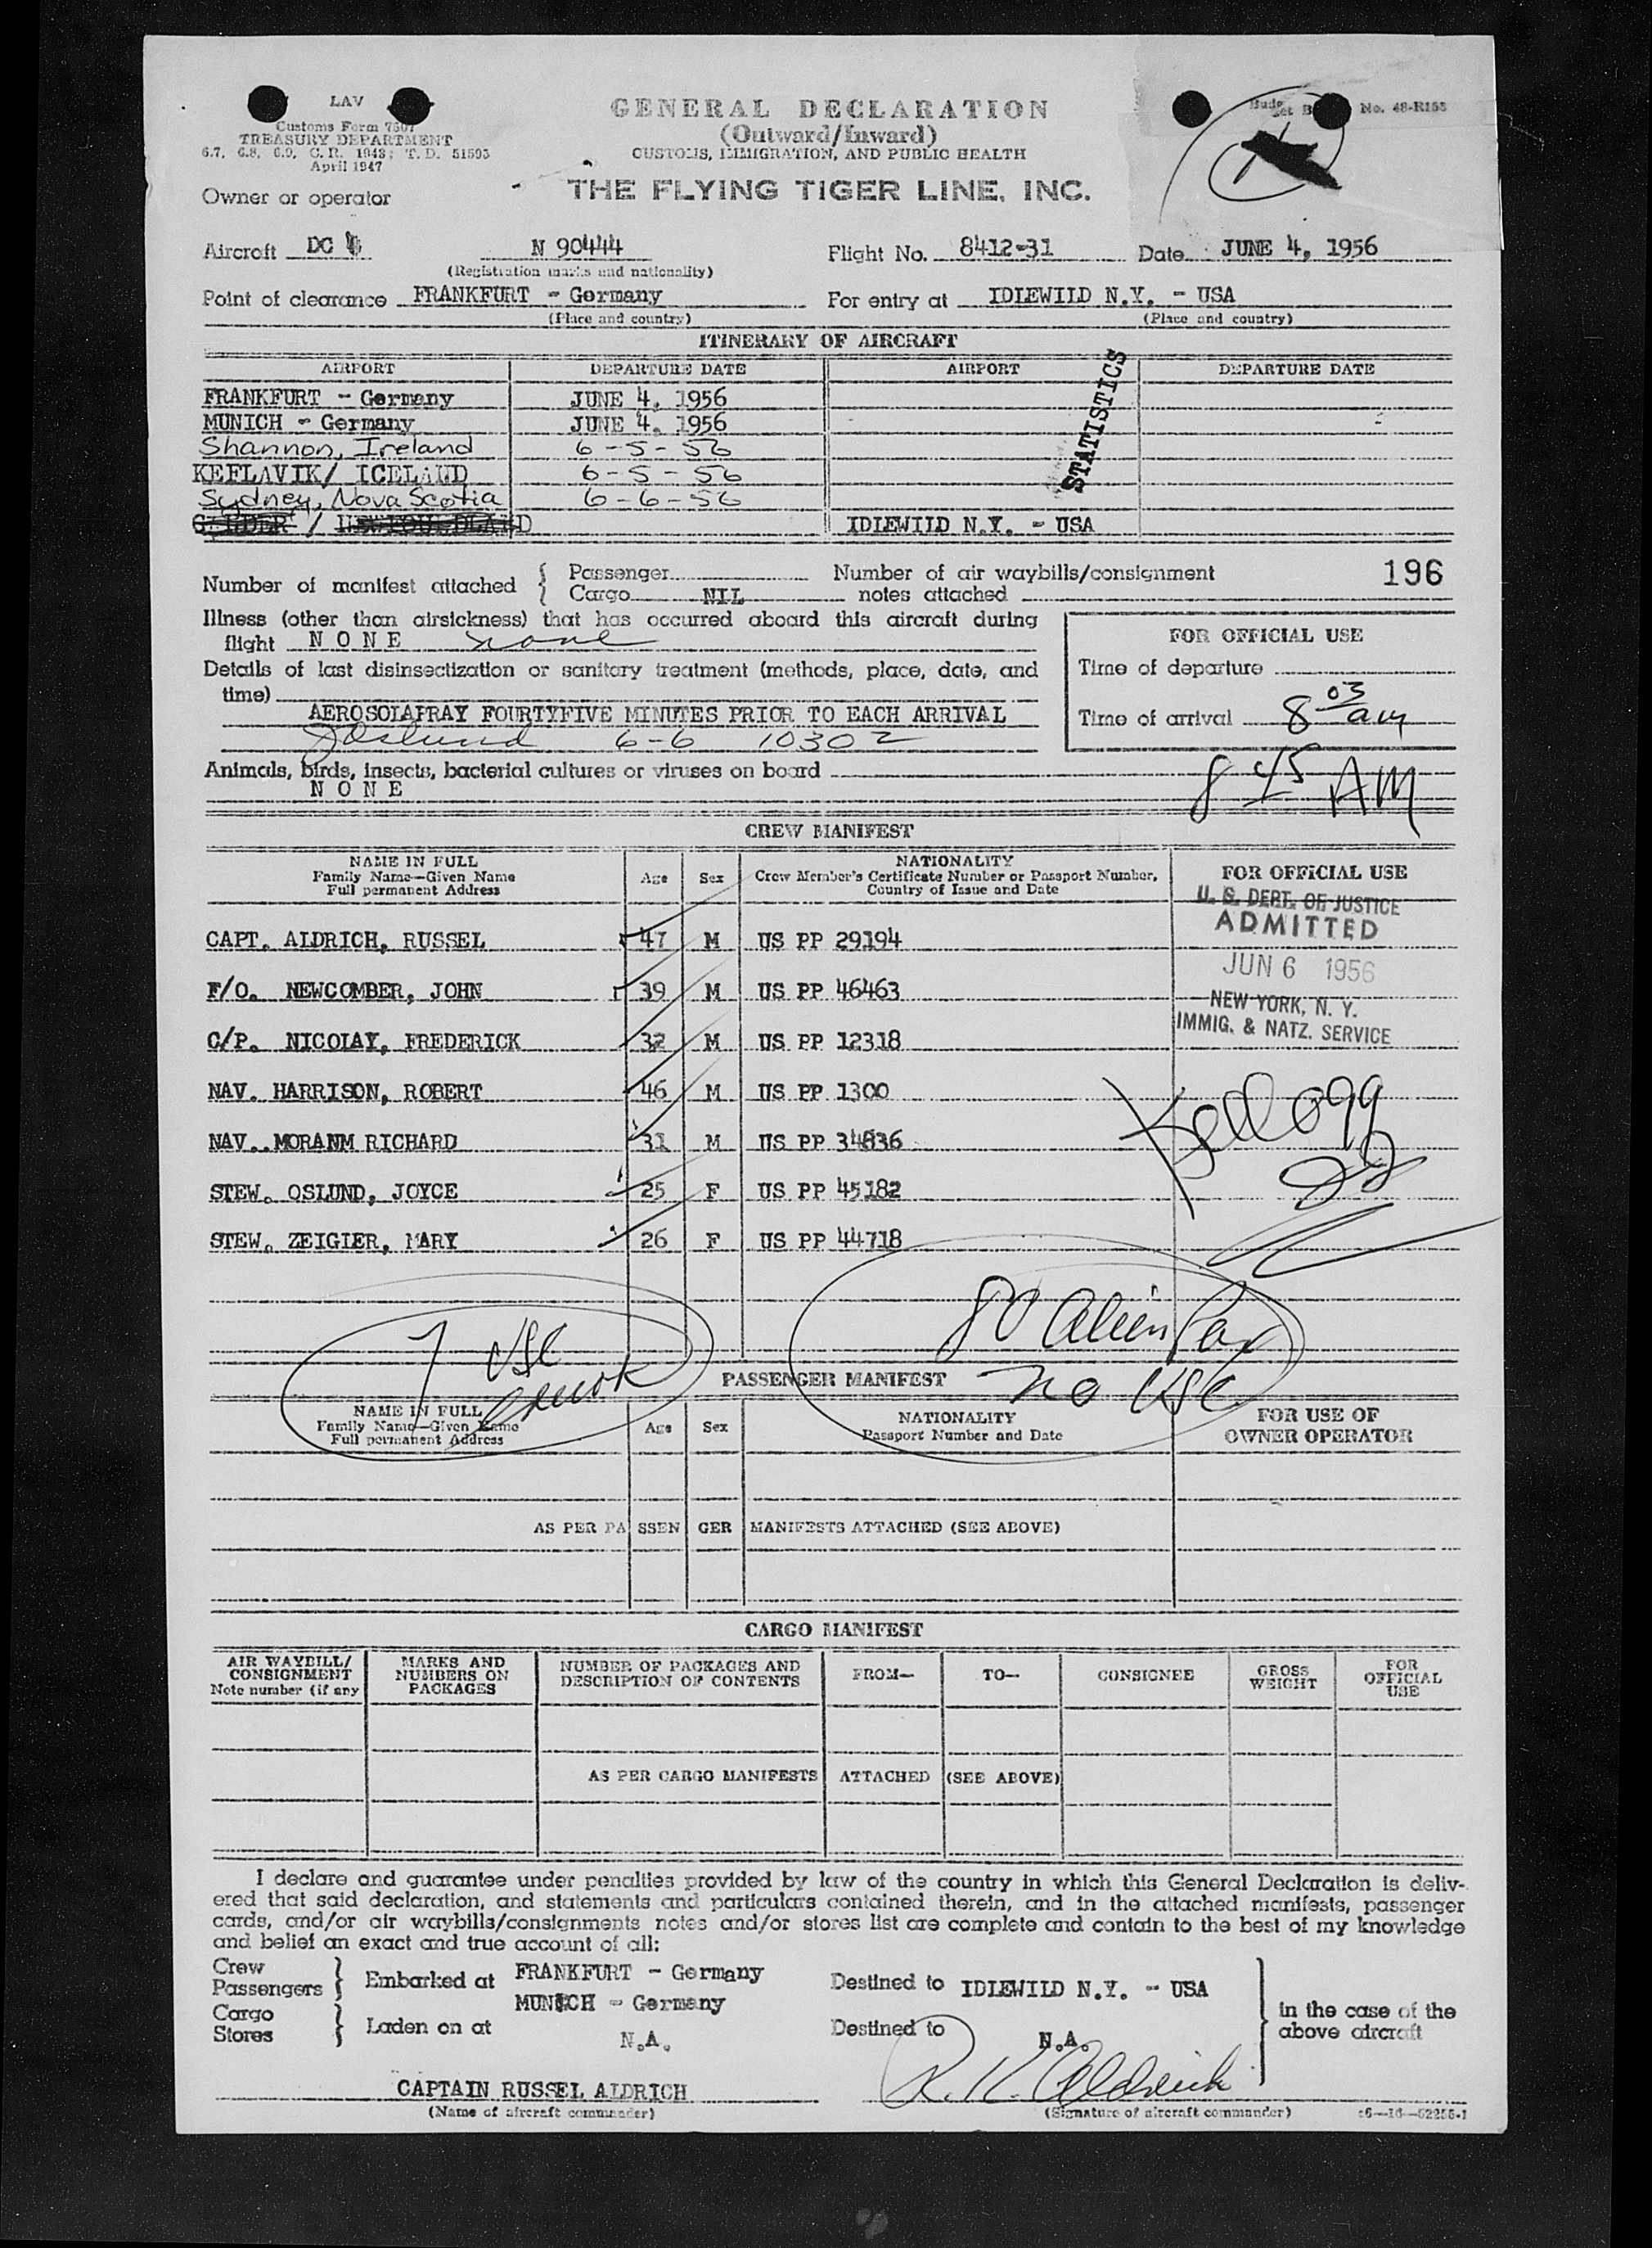 LAV
Customs Form 7507
TREASURY DEPARTMENT
6.7, 6.8, 6.9, C. R. 1943; T. D. 51595
April 1947
GENERAL DECLARATION
(Outward/Inward)
CUSTOMS, IMMIGRATION, AND PUBLIC HEALTH
No. 48-R155
Owner or operator THE FLYING TIGER LINE, INC.
Aircraft DC N 90444 Flight No. 8412-31 Date JUNE 4, 1956
(Registration marks and nationality)
Point of clearance FRANKFURT - Germany For entry at IDLEWILD N.Y. - USA
(Place and country) (Place and country)
ITINERARY OF AIRCRAFT
AIRPORT DEPARTURE DATE AIRPORT DEPARTURE DATE
STATISTICS
FRANKFURT - Germany JUNE 4, 1956
MUNICH - Germany JUNE 4, 1956
Shannon, Ireland 6-5-56
KEFLAVIK/ ICELAND 6-5-56
Sydney, Nova Scotia 6-6-56
IDLEWILD N.Y. - USA
Number of manifest attached { Passenger Number of air waybills/consignment 196
Cargo NIL notes attached
Illness (other than airsickness) that has occurred aboard this aircraft during
flight NONE none
Details of last disinsectization or sanitary treatment (methods, place, date, and
time)
AEROSOLAPRAY FOURTYFIVE MINUTES PRIOR TO EACH ARRIVAL
JOslund 6-6 1030Z
FOR OFFICIAL USE
Time of departure
Time of arrival 8 03 am
Animals, birds, insects, bacterial cultures or viruses on board
NONE
8 45 AM
CREW MANIFEST
NAME IN FULL
Family Name—Given Name
Full permanent Address
Age Sex
NATIONALITY
Crew Member's Certificate Number or Passport Number,
Country of Issue and Date
FOR OFFICIAL USE
U. S. DEPT. OF JUSTICE
ADMITTED
JUN 6 1956
NEW YORK, N. Y.
IMMIG. & NATZ. SERVICE
CAPT. ALDRICH, RUSSEL 47 M US PP 29194
F/O. NEWCOMBER, JOHN 39 M US PP 46463
C/P. NICOLAY, FREDERICK 32 M US PP 12318
NAV. HARRISON, ROBERT 46 M US PP 1300
NAV. MORANM RICHARD 31 M US PP 34836
STEW. OSLUND, JOYCE 25 F US PP 45182
STEW. ZEIGIER, MARY 26 F US PP 44718
Kellogg
7 USC
80 Alien Pax
no USC
PASSENGER MANIFEST
NAME IN FULL
Family Name—Given Name
Full permanent Address
Age Sex
NATIONALITY
Passport Number and Date
FOR USE OF
OWNER OPERATOR
AS PER PASSENGER MANIFESTS ATTACHED (SEE ABOVE)
CARGO MANIFEST
AIR WAYBILL/
CONSIGNMENT
Note number (if any
MARKS AND
NUMBERS ON
PACKAGES
NUMBER OF PACKAGES AND
DESCRIPTION OF CONTENTS
FROM— TO— CONSIGNEE
GROSS
WEIGHT
FOR
OFFICIAL
USE
AS PER CARGO MANIFESTS ATTACHED (SEE ABOVE)
I declare and guarantee under penalties provided by law of the country in which this General Declaration is deliv-
ered that said declaration, and statements and particulars contained therein, and in the attached manifests, passenger
cards, and/or air waybills/consignments notes and/or stores list are complete and contain to the best of my knowledge
and belief an exact and true account of all:
Crew
Passengers } Embarked at FRANKFURT - Germany Destined to IDLEWILD N.Y. - USA
MUNICH - Germany
Cargo
Stores } Laden on at N.A. Destined to N.A.
in the case of the
above aircraft
CAPTAIN RUSSEL ALDRICH R. K. Aldrich
(Name of aircraft commander) (Signature of aircraft commander) 16-52255-1